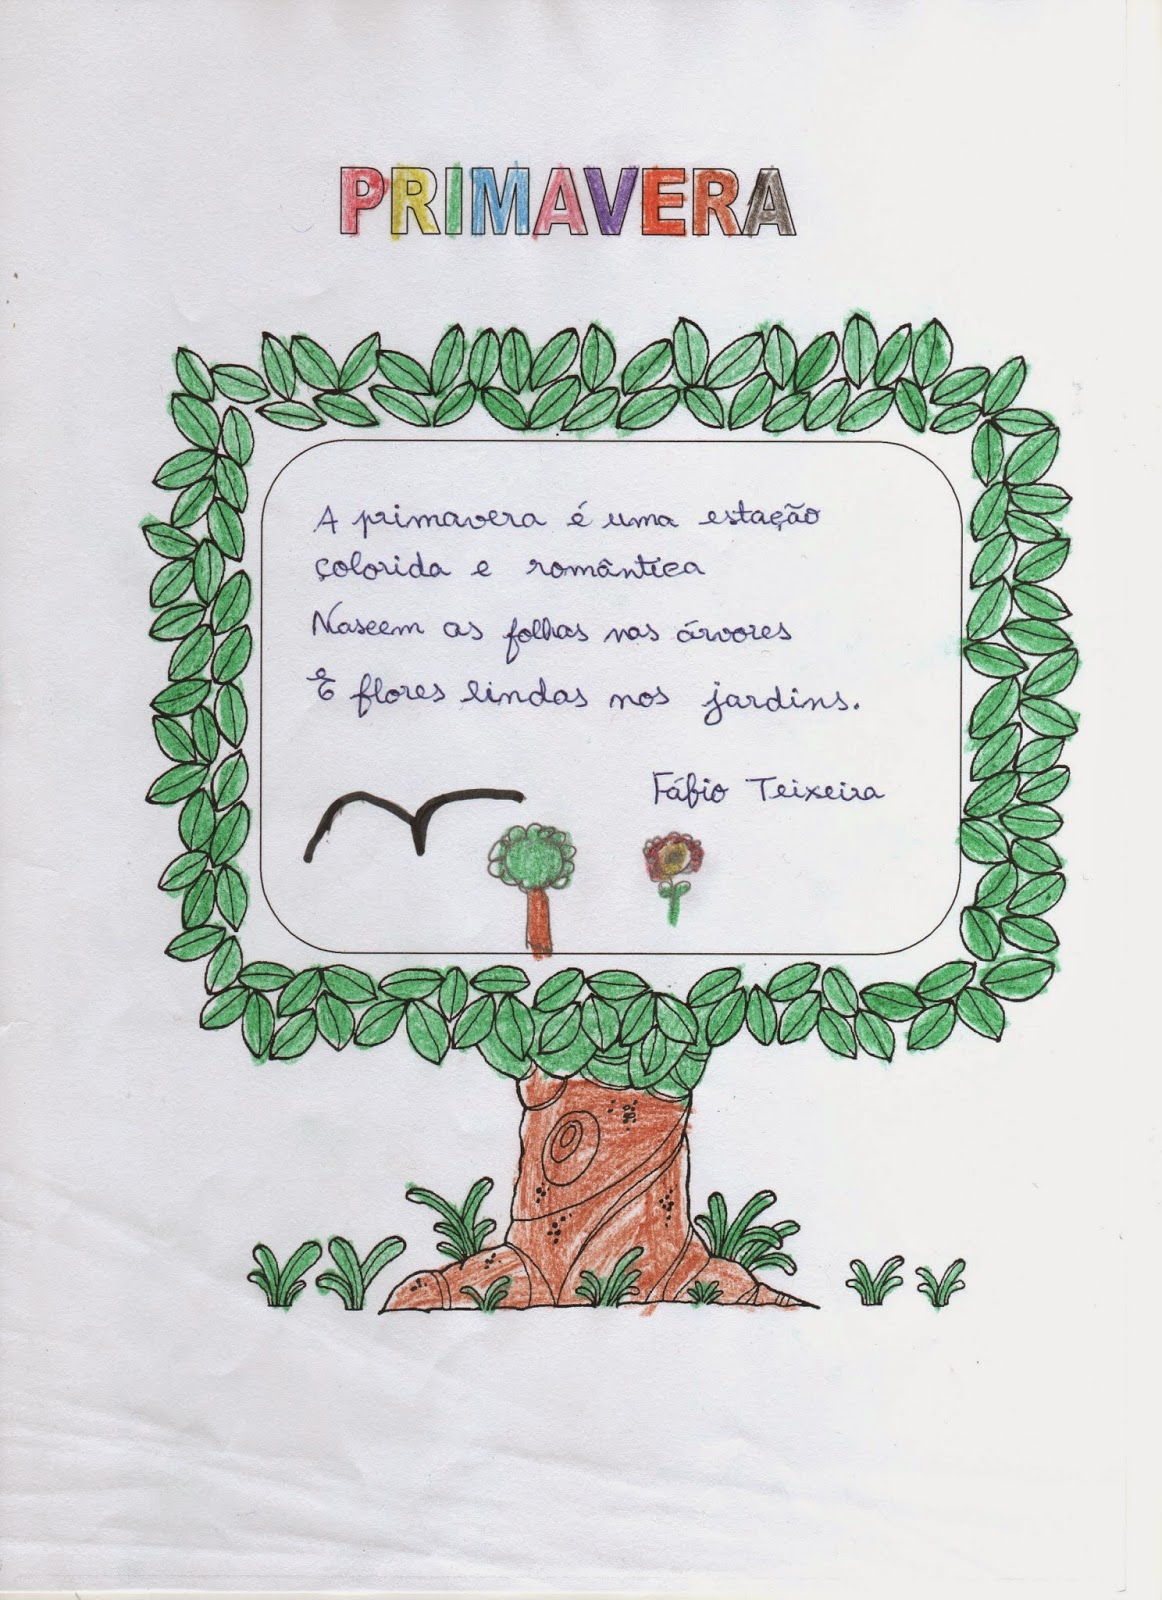 PRIMAVERA
A primavera é uma estação
çolorida e romântica
Nascem as folhas nas árvores
E flores lindas nos jardins.
Fábio Teixeira